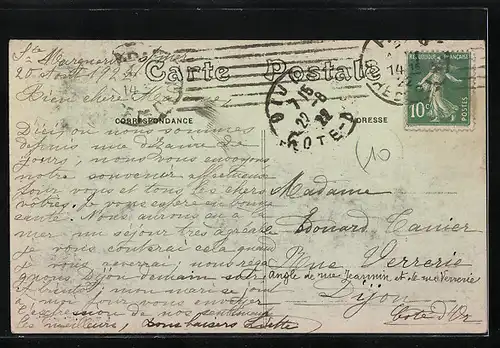 Ste Marguerite s/mer
20 août 1922
Bien chère
Carte Postale
CORRESPONDANCE
ADRESSE
RÉPUBLIQUE FRANÇAISE
10c
POSTES
7-15
22-8
22
CÔTE-D'OR
(10
D'ici, où nous sommes
depuis une dizaine de
jours, nous vous envoyons
notre souvenir affectueux
pour vous et tous les chers
vôtres. Je vous espère en bonne
santé. Nous aurons eu à la
mer un séjour très agréable
je vous conterai cela quand
je vous reverrai, nous
Dijon demain soir
mon mari se joint
à moi pour vous envoyer
l'expression de nos sentiments
les meilleurs, bons baisers
Madame
Edouard
Rue Verrerie
angle de rue Jeannin et de rue Verrerie
Dijon
Côte d'Or